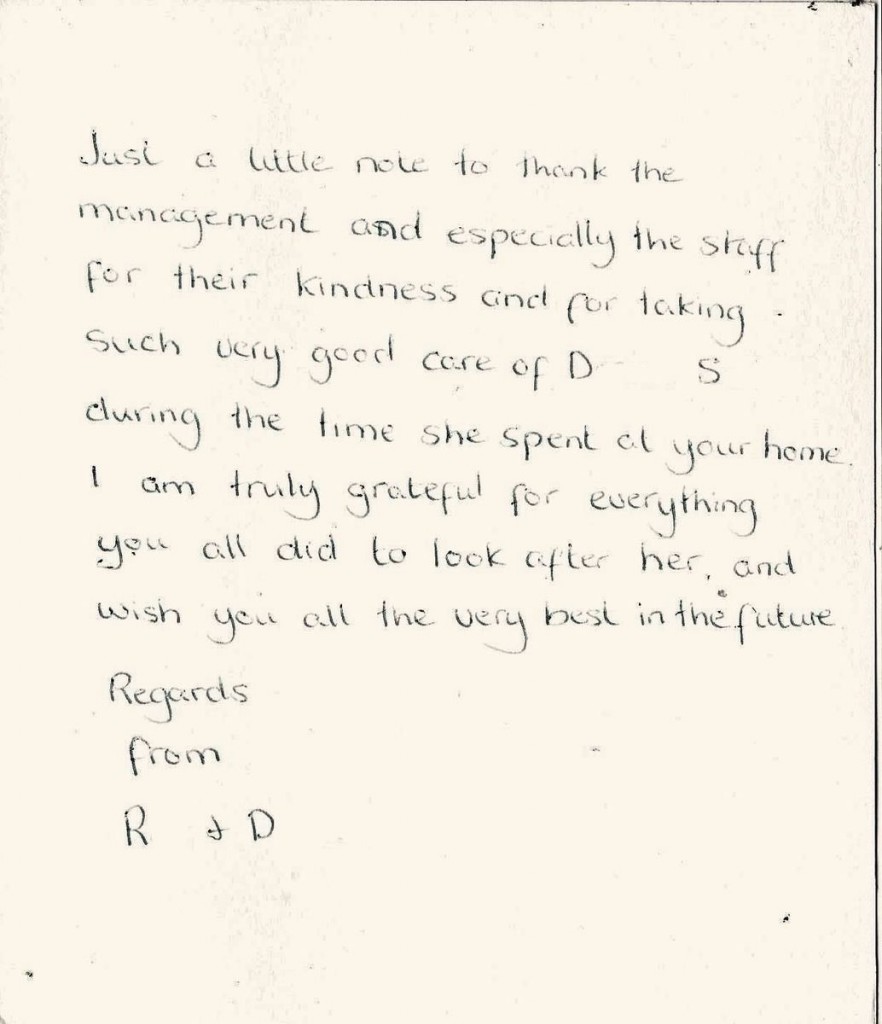 Just a little note to thank the
management and especially the staff
for their kindness and for taking
such very good care of D S
during the time she spent at your home.
I am truly grateful for everything
you all did to look after her, and
wish you all the very best in the future
Regards
from
R & D